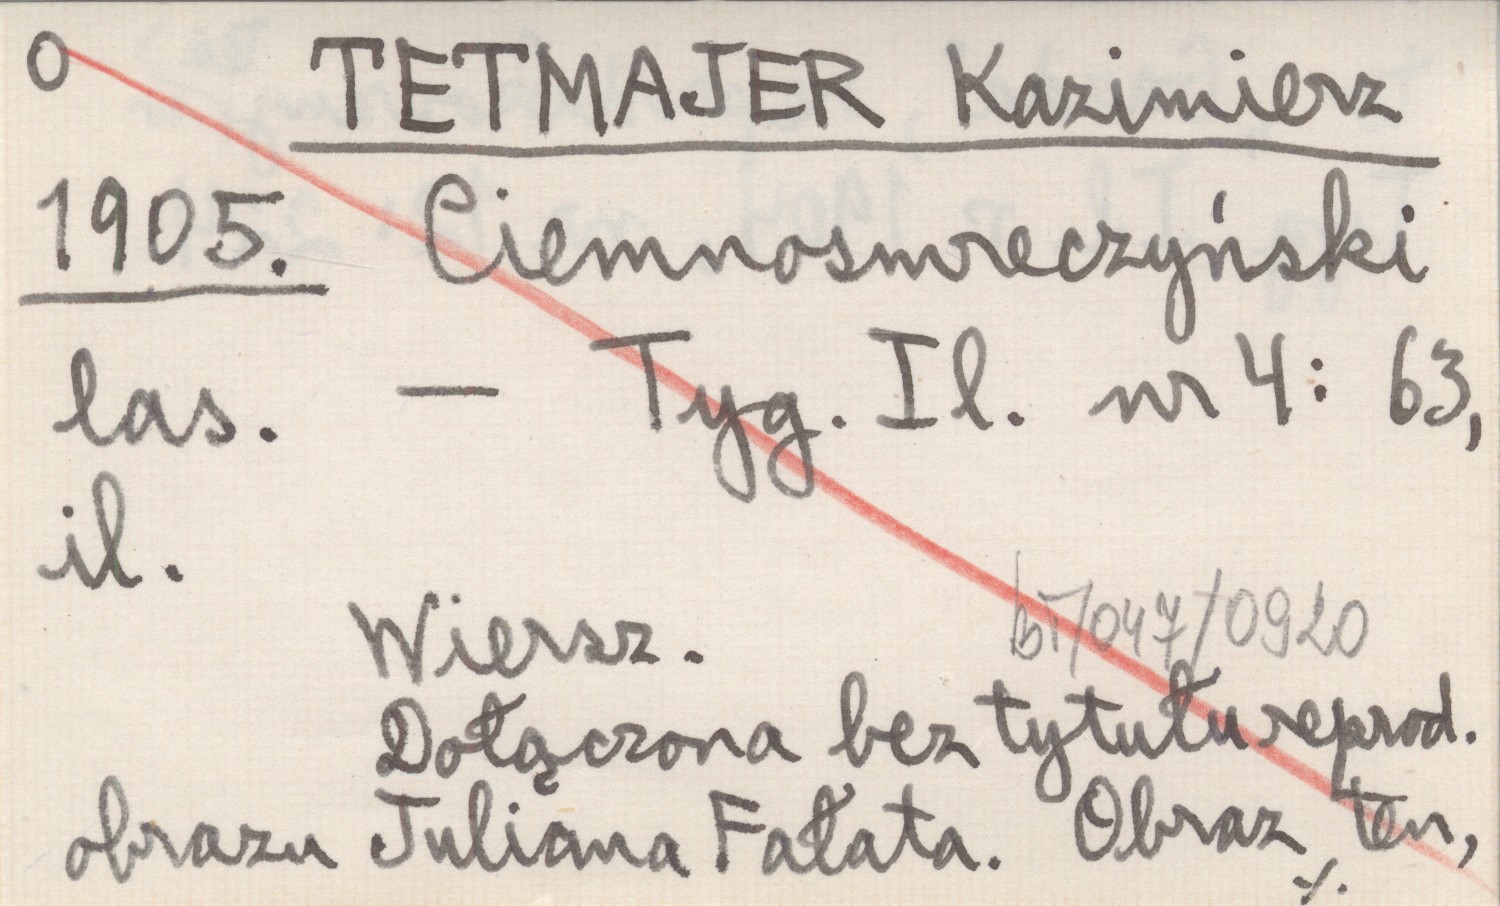 O TETMAJER Kazimierz
1905. Ciemnosmreczyński
las. — Tyg. Il. nr 4: 63,
il.
Wiersz.
bT/047/0920
Dołączona bez tytułu reprod.
obrazu Juliana Fałata. Obraz ten,
./.